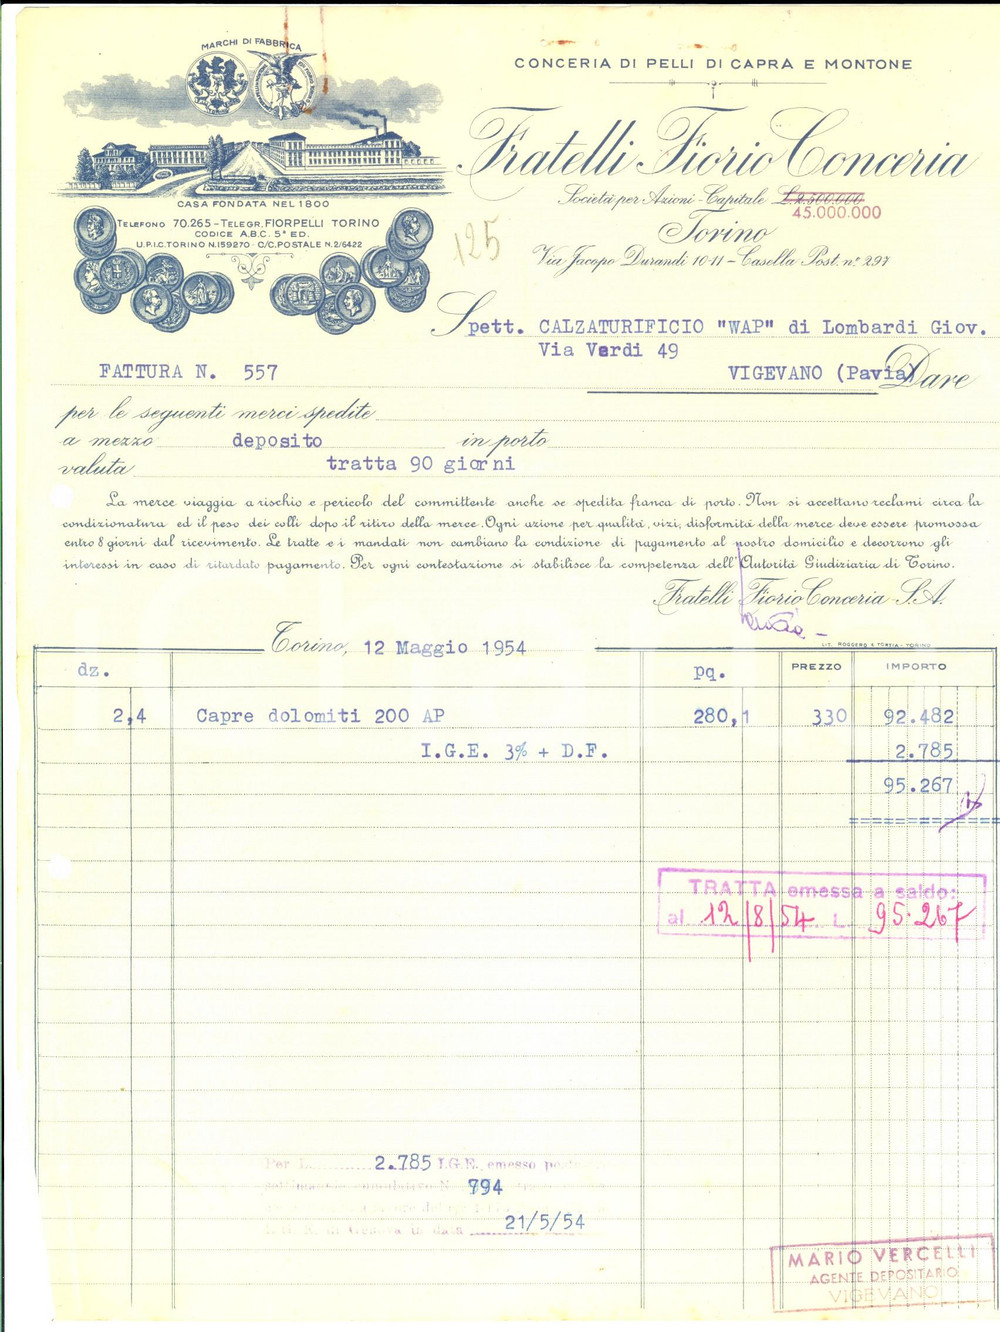 MARCHI DI FABBRICA
CASA FONDATA NEL 1800
TELEFONO 70.265 - TELEGR. FIORPELLI TORINO
CODICE A.B.C. 5ª ED.
U.P.I.C. TORINO N.159270 - C/C.POSTALE N.2/6422
CONCERIA DI PELLI DI CAPRA E MONTONE
Fratelli Fiorio Conceria
Società per Azioni - Capitale L. 2.500.000
45.000.000
Torino
Via Jacopo Durandi 10-11 - Casella Post. n° 297
125
Spett. CALZATURIFICIO "WAP" di Lombardi Giov.
Via Verdi 49
FATTURA N. 557
VIGEVANO (Pavia) Dare
per le seguenti merci spedite
a mezzo deposito in porto
valuta tratta 90 giorni
La merce viaggia a rischio e pericolo del committente anche se spedita franca di porto. Non si accettano reclami circa la
condizionatura ed il peso dei colli dopo il ritiro della merce. Ogni azione per qualità, vizi, disformità della merce deve essere promossa
entro 8 giorni dal ricevimento. Le tratte e i mandati non cambiano la condizione di pagamento al nostro domicilio e decorrono gli
interessi in caso di ritardato pagamento. Per ogni contestazione si stabilisce la competenza dell'Autorità Giudiziaria di Torino.
Fratelli Fiorio Conceria S.A.
LIT. ROGGERO & TORTIA - TORINO
Torino, 12 Maggio 1954
dz. pq. PREZZO IMPORTO
2,4 Capre dolomiti 200 AP 280,1 330 92.482
I.G.E. 3% + D.F. 2.785
95.267
TRATTA emessa a saldo:
al 12/8/54 L. 95.267
Per L. 2.785 I.G.E. emesso
N. 794
in data 21/5/54
MARIO VERCELLI
AGENTE DEPOSITARIO
VIGEVANO